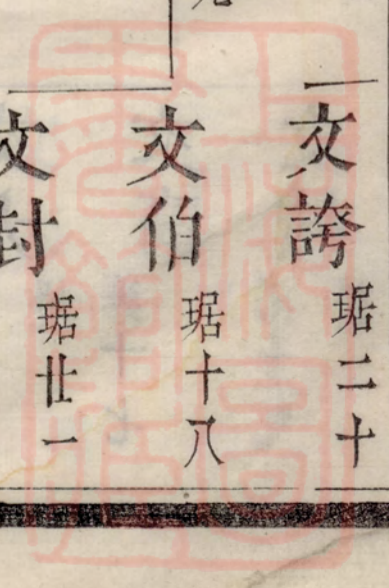 文誇 琚二十
文伯 琚十八
文封 琚廿一